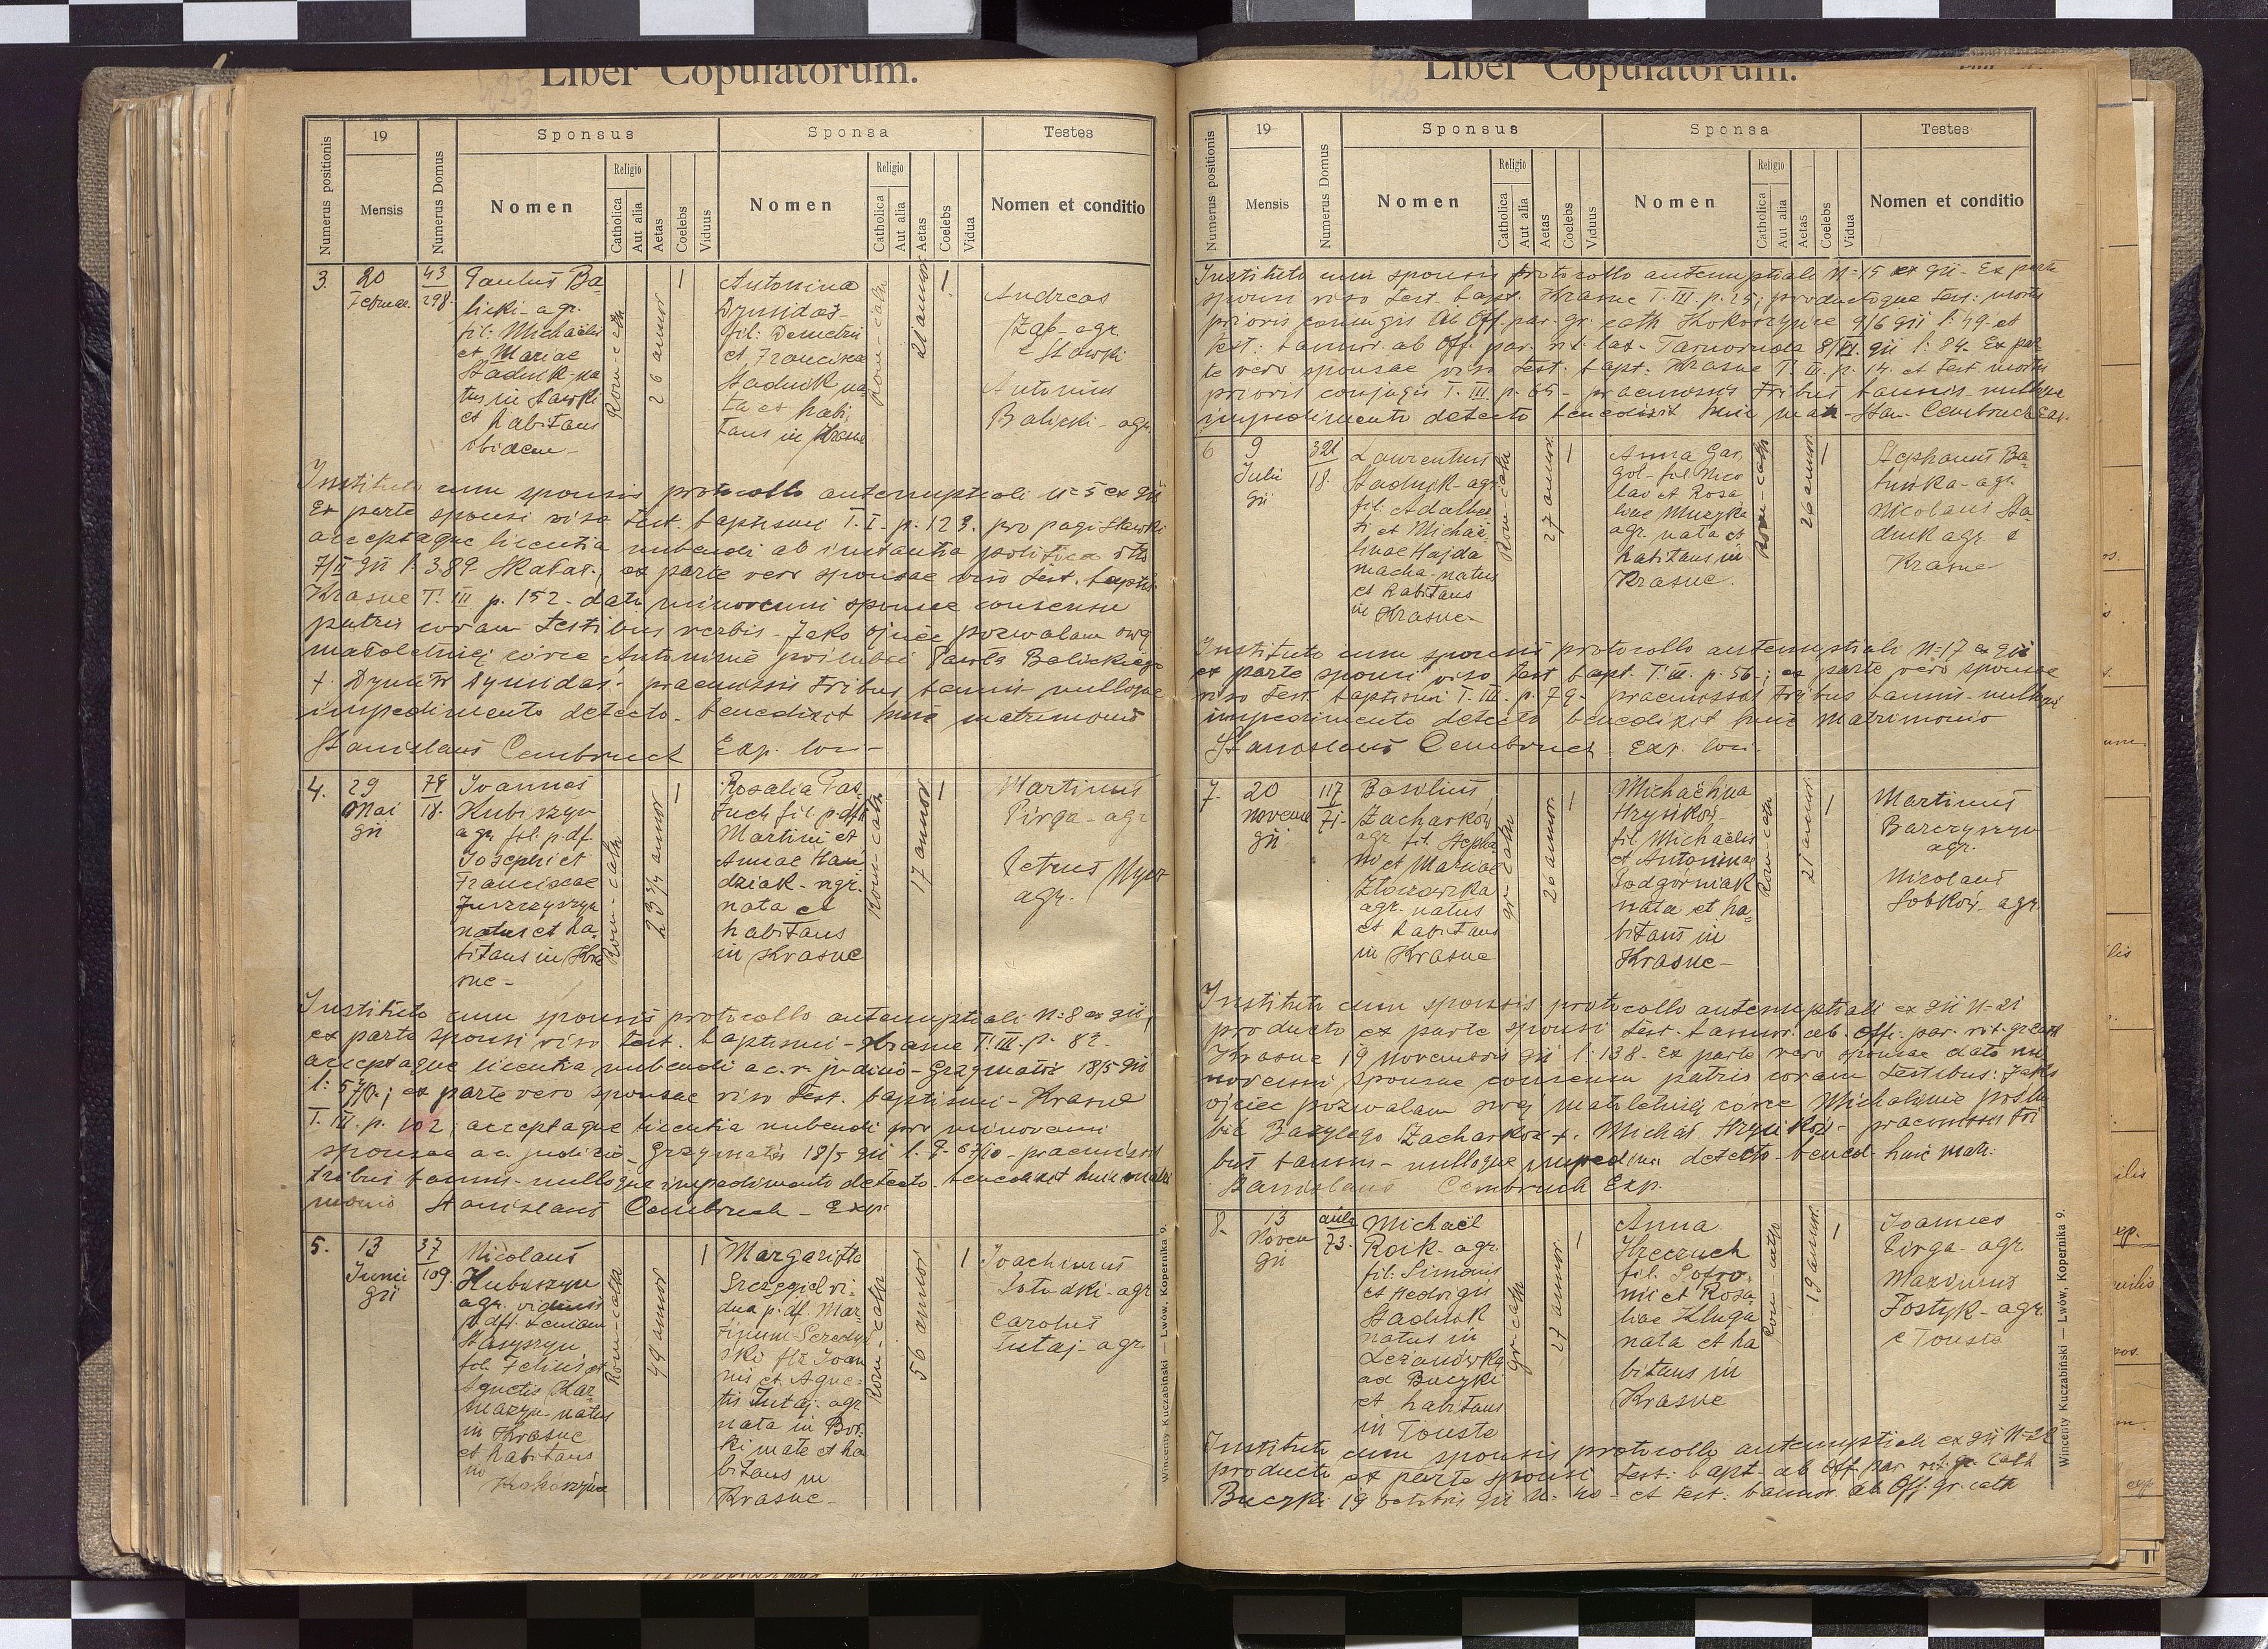 Liber Copulatorum.
Numerus positionis
19
Mensis
Numerus Domus
Sponsus
Nomen
Religio
Catholica
Aut alia
Aetas
Coelebs
Viduus
Sponsa
Nomen
Religio
Catholica
Aut alia
Aetas
Coelebs
Vidua
Testes
Nomen et conditio
3.
20
Februar.
43
298.
Paulus Ba
licki - agr.
fil. Michaëlis
et Mariae
Stadnik - na
tus in Sławki
et habitans
ibidem -
Rom-cath
26 annor
1
Antonina
Dymidas -
fil. Demetrii
et Franciscae
Stadnik na
ta et habi
tans in Krasne
Rom-cath
21 annor
1
Andreas
Ząb - agr
e Sławki
Antonius
Balicki - agr.
Instituto cum sponsis protocollo antenuptiali N=5 ex 911
Ex parte sponsi viso test. baptismi T. I. p. 123. pro pagi Sławki
acceptaque licentia nubendi ab instantia politica dto
7/II 911 l. 389 Skałat; ex parte vero sponsae viso test. baptis.
Krasne T. III p. 152 - dato minorenni sponsae consensu
patris coram testibus verbis - Jako ojciec pozwalam swej
małoletniej córce Antoninie poślubić Pawła Balickiego
+ Dymitr Dymidas - praemissis tribus bannis - nulloque
impedimento detecto - benedixit huic matrimonio
Stanislaus Cembruch Exp. loci -
4.
29
Mai
911
79
18.
Joannes
Kubiszyn
agr. fil. p. df.
Josephi et
Franciscae
Juszczyszyn
natus et ha
bitans in Kra
sne -
Rom-cath
23 3/4 annor
1
Rosalia Pas
tuch fil. p. dfti
Martini et
Annae Han
dziak - agr.
nata et
habitans
in Krasne
Rom-cath
17 annor
1
Martinus
Pirga - agr
Petrus
agr.
Instituto cum sponsis protocollo antenuptiali N=8 ex 911,
ex parte sponsi viso test. baptismi - Krasne T. III. p. 82 -
acceptaque licentia nubendi a c. r. judicio - Grzymałów 18/5 911
l: 57/0; ex parte vero sponsae viso test. baptismi - Krasne
T. III. p. 102; acceptaque licentia nubendi pro minorenni
sponsae a c. judicio - Grzymałów 18/5 911 l. P. 67/10 - praemissis
tribus bannis - nulloque impedimento detecto - benedixit huic matri
monio Stanislaus Cembruch - Exp.
5.
13
Junii
911
37
109.
Nicolaus
Hubiszyn
agr. viduus
p. dft.
Stasyszyn
fil. Felicis et
Agnetis Kar
maszyn natus
in Krasne
et habitans
in
Kokoszyńce
Rom-cath
49 annor
1
Margaritta
Szczygieł vi-
dua p. df. Mar
tinum Szredyń
ski fil. Joan
nis et Agne-
tis Tutaj - agr
nata in Bor
ki małe et ha
bitans in
Krasne -
Rom-cath
56 annor
1
Joachimus
Łotudki - agr
Carolus
Tutaj - agr.
Wincenty Kuczabiński — Lwów, Kopernika 9.
Liber Copulatorum.
Numerus positionis
19
Mensis
Numerus Domus
Sponsus
Nomen
Religio
Catholica
Aut alia
Aetas
Coelebs
Viduus
Sponsa
Nomen
Religio
Catholica
Aut alia
Aetas
Coelebs
Vidua
Testes
Nomen et conditio
Instituto cum sponsis protocollo antenuptiali N=15 ex 911 - Ex parte
sponsi viso test. bapt. Krasne T. III. p. 25; productoque test: mortis
prioris conjugis ab Off. par. gr. cath Kokoszyńce 9/6 911 l: 49. et
test: bannor. ab Off. par. rit. lat. Tarnoruda 8/VI. 911 l: 84. Ex par
te vero sponsae viso test. bapt. Krasne T. II. p. 14. et test mortis
prioris conjugis T. III. p. 65 - praemissis tribus bannis - nulloque
impedimento detecto benedixit huic matr. Stan. Cembruch Exp.
6
9
Julii
911
321
18.
Laurentius
Stadnik - agr
fil. Adalber
ti et Michaë-
linae Hajda
macha - natus
et habitans
in Krasne -
Rom-cath
27 annor.
1
Anna Gar
gol - fil. Nico
lai et Rosa
liae Muzyka
agr. nata et
habitans in
Krasne.
Rom-cath
26 annor.
1
Stephanus Ba
tuska - agr.
Nicolaus Sta
dnik agr. e
Krasne
Instituto cum sponsis protocollo antenuptiali N=17 ex 911
ex parte sponsi viso test bapt. T. III. p. 56; ex parte vero sponsae
viso test. baptismi T. III. p. 79 - praemissis tribus bannis - nulloque
impedimento detecto benedixit huic matrimonio
Stanislaus Cembruch - Exp. loci -
7.
20
Novem
911
117
71-
Basilius
Zacharków
agr. fil. Stepha
ni et Mariae
Złoczowska
agr. natus
et habitans
in Krasne
gr-cath
26 annor
1
Michaëlina
Hrycików -
fil. Michaëlis
et Antoninae
Podgórniak
nata et ha-
bitans in
Krasne -
Rom-cath
21 annor.
1
Martinus
Barczyszyn
agr.
Nicolaus
Sobków - agr.
Instituto cum sponsis protocollo antenuptiali ex 911 N=21
producto ex parte sponsi test. bannor. ab Off. par. rit. gr. cath
Krasne 19 novembris 911 l: 138. Ex parte vero sponsae dato mi
norenni sponsae consensu patris coram testibus: Jako
ojciec pozwalam swej małoletniej córce Michalinie poślu
bić Bazylego Zacharków +. Michał Hrycików - praemissis tri
bus bannis - nulloque impedim. detecto - bened. huic matr.
Stanislaus Cembruch Exp.
8.
13
Novem
911
aula
73.
Michaël
Roik - agr.
fil. Simonis
et Hedvigis
Stadnik
natus in
Leżanówka
ad Buczki
et habitans
in Touste
gr-cath
27 annor.
1
Anna
Hreczuch
fil. Petro
nii et Rosa
liae Kluga
nata et ha
bitans in
Krasne
Rom-cath
19 annor.
1
Joannes
Pirga - agr
Maximus
Fostyk - agr.
e Touste
Instituto cum sponsis protocollo antenuptiali ex 911 N=22
producto ex parte sponsi test: bapt. ab Off. par rit. gr. cath
Buczki 19 octobris 911 N. 40 - et test: bannor. ab Off. gr. cath
Wincenty Kuczabiński — Lwów, Kopernika 9.